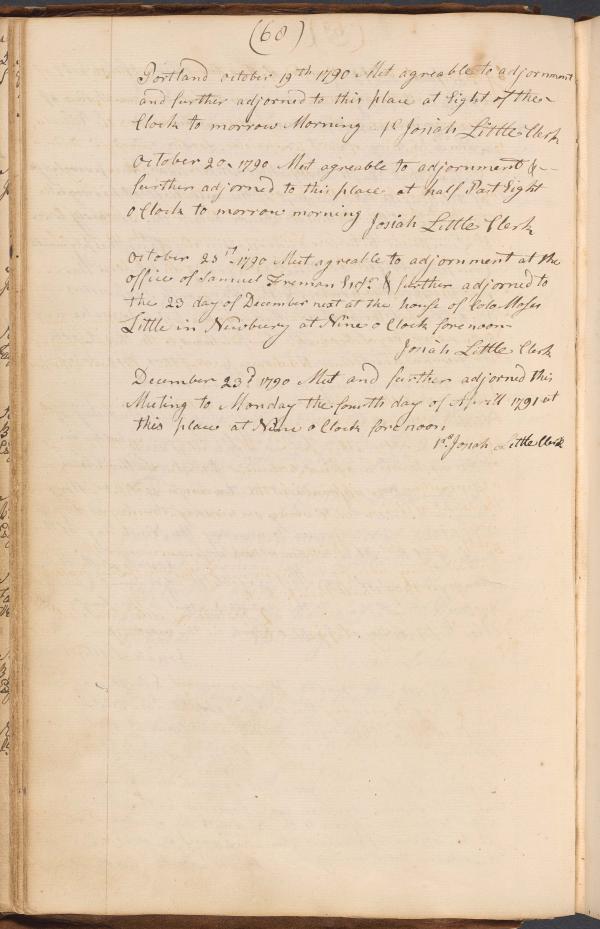 (68)
Portland october 19th 1790 Met agreable to adjornment
and further adjorned to this place at Eight of the
Clock to morrow Morning pr Josiah Little Clerk
October 20 1790 Met agreable to adjornment &
further adjorned to this place at half Past Eight
o Clock to morrow morning
Josiah Little Clerk
October 1790 Met agreable to adjornment at the
office of Samuel Freman Esqr. & further adjorned to
the 23 day of December next at the house of Colo Moses
Little in Newbury at Nine o Clock forenoon
Josiah Little Clerk
December 23d 1790 Met and further adjorned this
Meting to Monday the fourth day of Aprill 1791 at
this place at Nine o Clock forenoon
Josiah Little Clerk